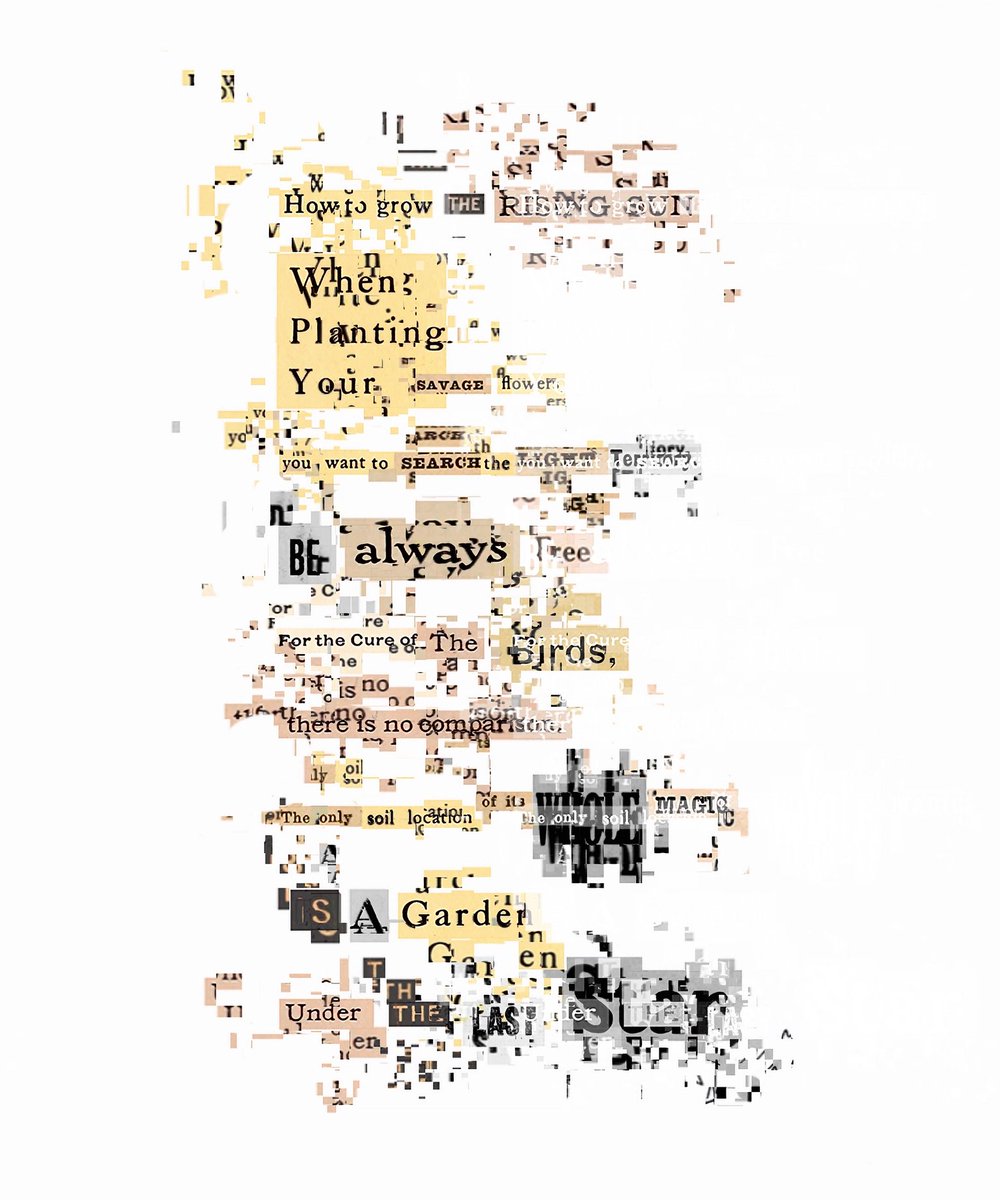 How to grow THE RISING SUN
When
Planting
Your SAVAGE flowers
you want to SEARCH the LIGHT Territory
BE always free
For the Cure of The Birds,
there is no comparison
The only soil location of its WHOLE MAGIC
IS A Garden
Under THE LAST Star